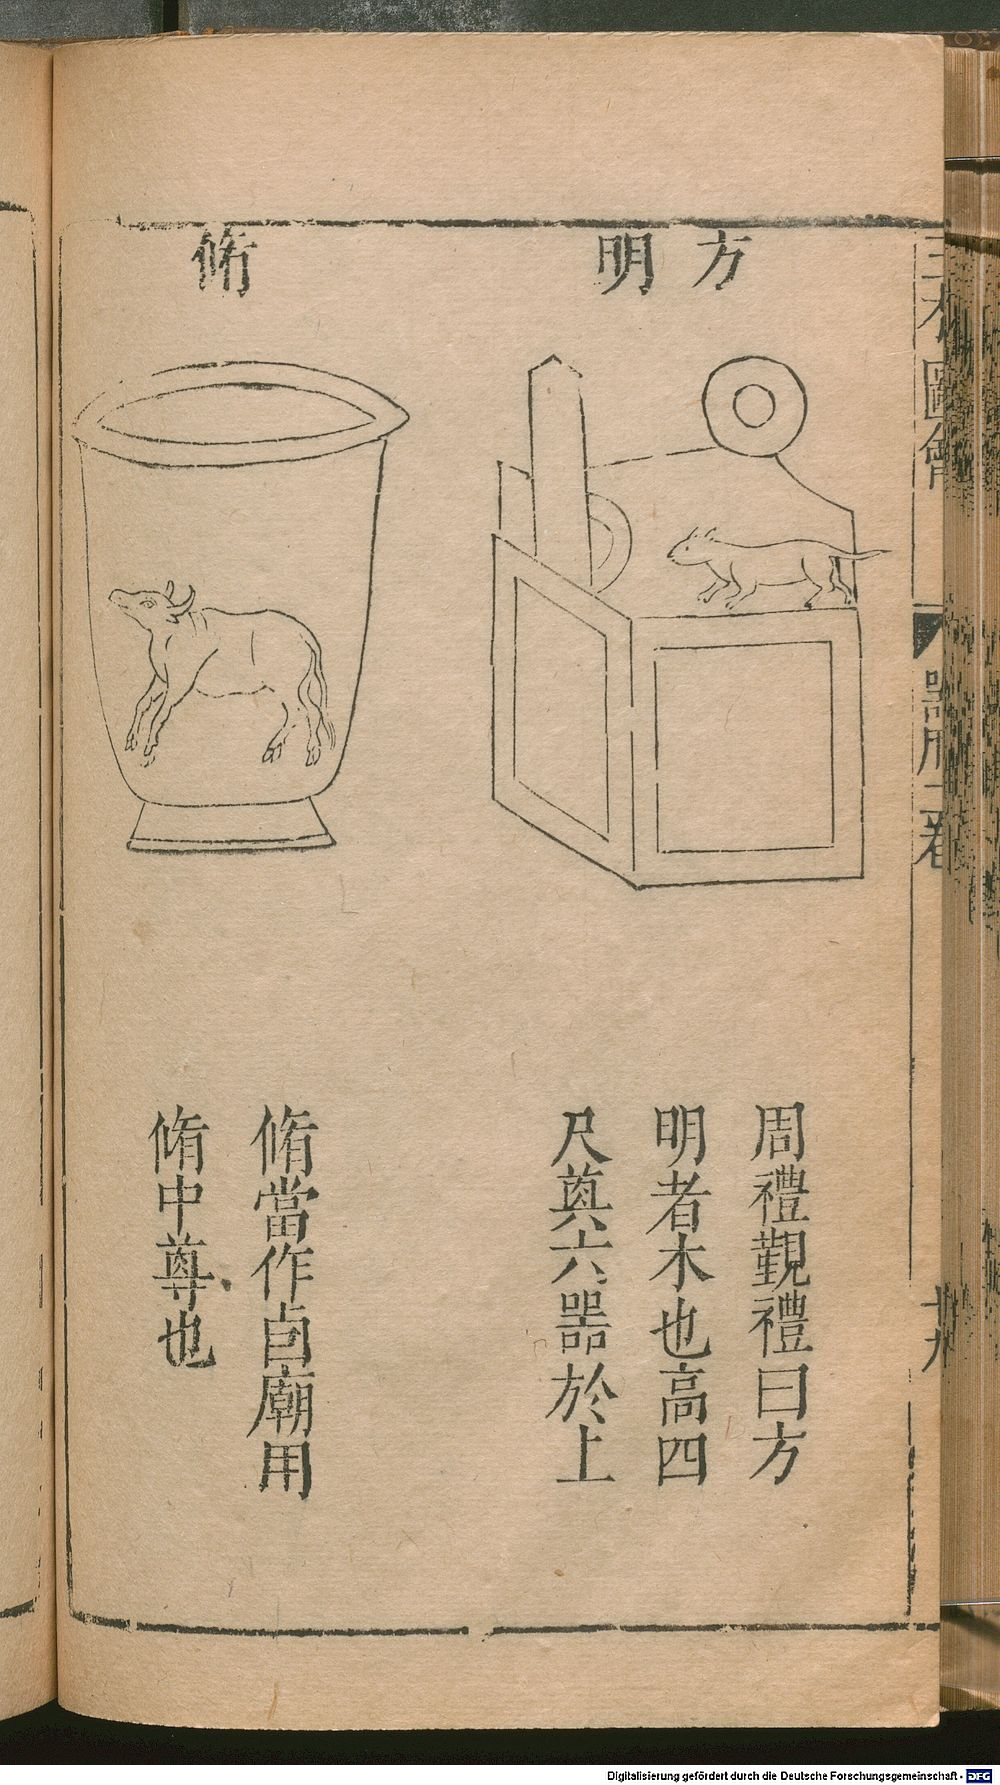 方明
脩
周禮覲禮曰方
明者木也高四
尺奠六噐於上
脩當作卣廟用
脩中尊也
三才圖會
噐用二卷
廿九
Digitalisierung gefördert durch die Deutsche Forschungsgemeinschaft - DFG